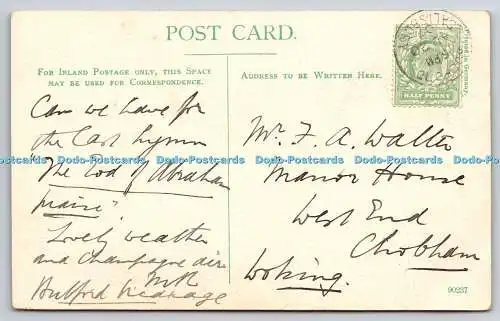 POST CARD.
FOR INLAND POSTAGE ONLY, THIS SPACE
MAY BE USED FOR CORRESPONDENCE.
Can we have for
the last hymn
"The God of Abraham
praise".
Lovely weather
and champagne air.
MR
ADDRESS TO BE WRITTEN HERE.
HALF PENNY
Printed in Germany.
Mr. F. A. Walter
Manor House
West End
Chobham
Woking.
90237
Dodo-Postcards Dodo-Postcards Dodo-Postcards Dodo-Postcards Dodo-Postcards